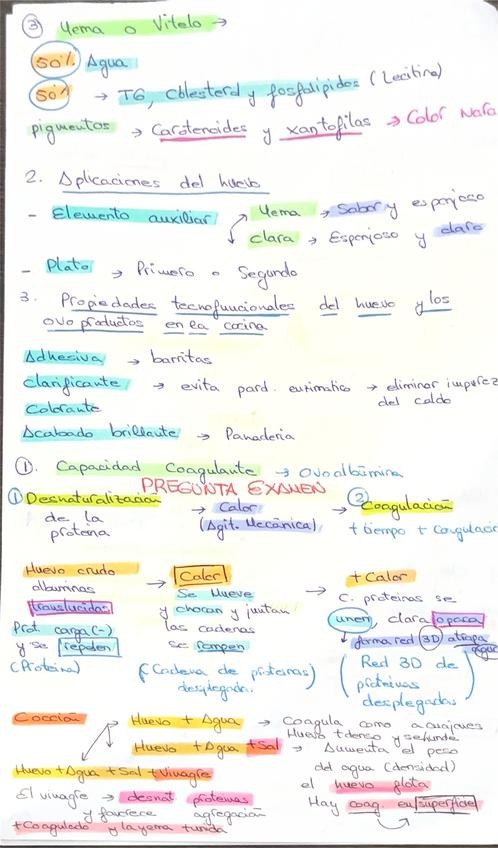 ③ Yema o Vitelo →
50% Agua
50% → TG, Colesterol y fosfolípidos (Lecitina)
pigmentos → Carotenoides y xantofilas → Color Nara
2. Aplicaciones del huevo
- Elemento auxiliar ↗ Yema → Sabor y esponjoso
↘ clara → Esponjoso y claro
- Plato → Primero o Segundo
3. Propiedades tecnofuncionales del huevo y los
ovoproductos en la cocina
Adhesiva → barritas
Clarificante → evita pard. enzimatico → eliminar impurez
Colorante del caldo
Acabado brillante → Panaderia
①. Capacidad Coagulante → Ovoalbúmina
PREGUNTA EXAMEN
① Desnaturalización → Calor → ② Coagulación
de la (Agit. Mecánica) + tiempo + Coagulación
proteína
Huevo crudo → Calor → + Calor
albuminas Se Mueve C. proteinas se
translucidas y chocan y juntan unen, clara opaca
Prot. carga (-) las cadenas ↓ forma red 3D atrapa
y se repelen se rompen agua
(Proteina) (Cadena de proteinas) (Red 3D de
desplegada. proteinas
desplegadas)
Cocción → Huevo + Agua → Coagula como
Huevo + denso y se hunde
Huevo + Agua + Sal → Aumenta el peso
del agua (densidad)
Huevo + Agua + Sal + Vinagre el huevo flota
El vinagre → desnat. proteinas Hay coag. en superficie
y favorece agregación
+ Coagulado y la yema